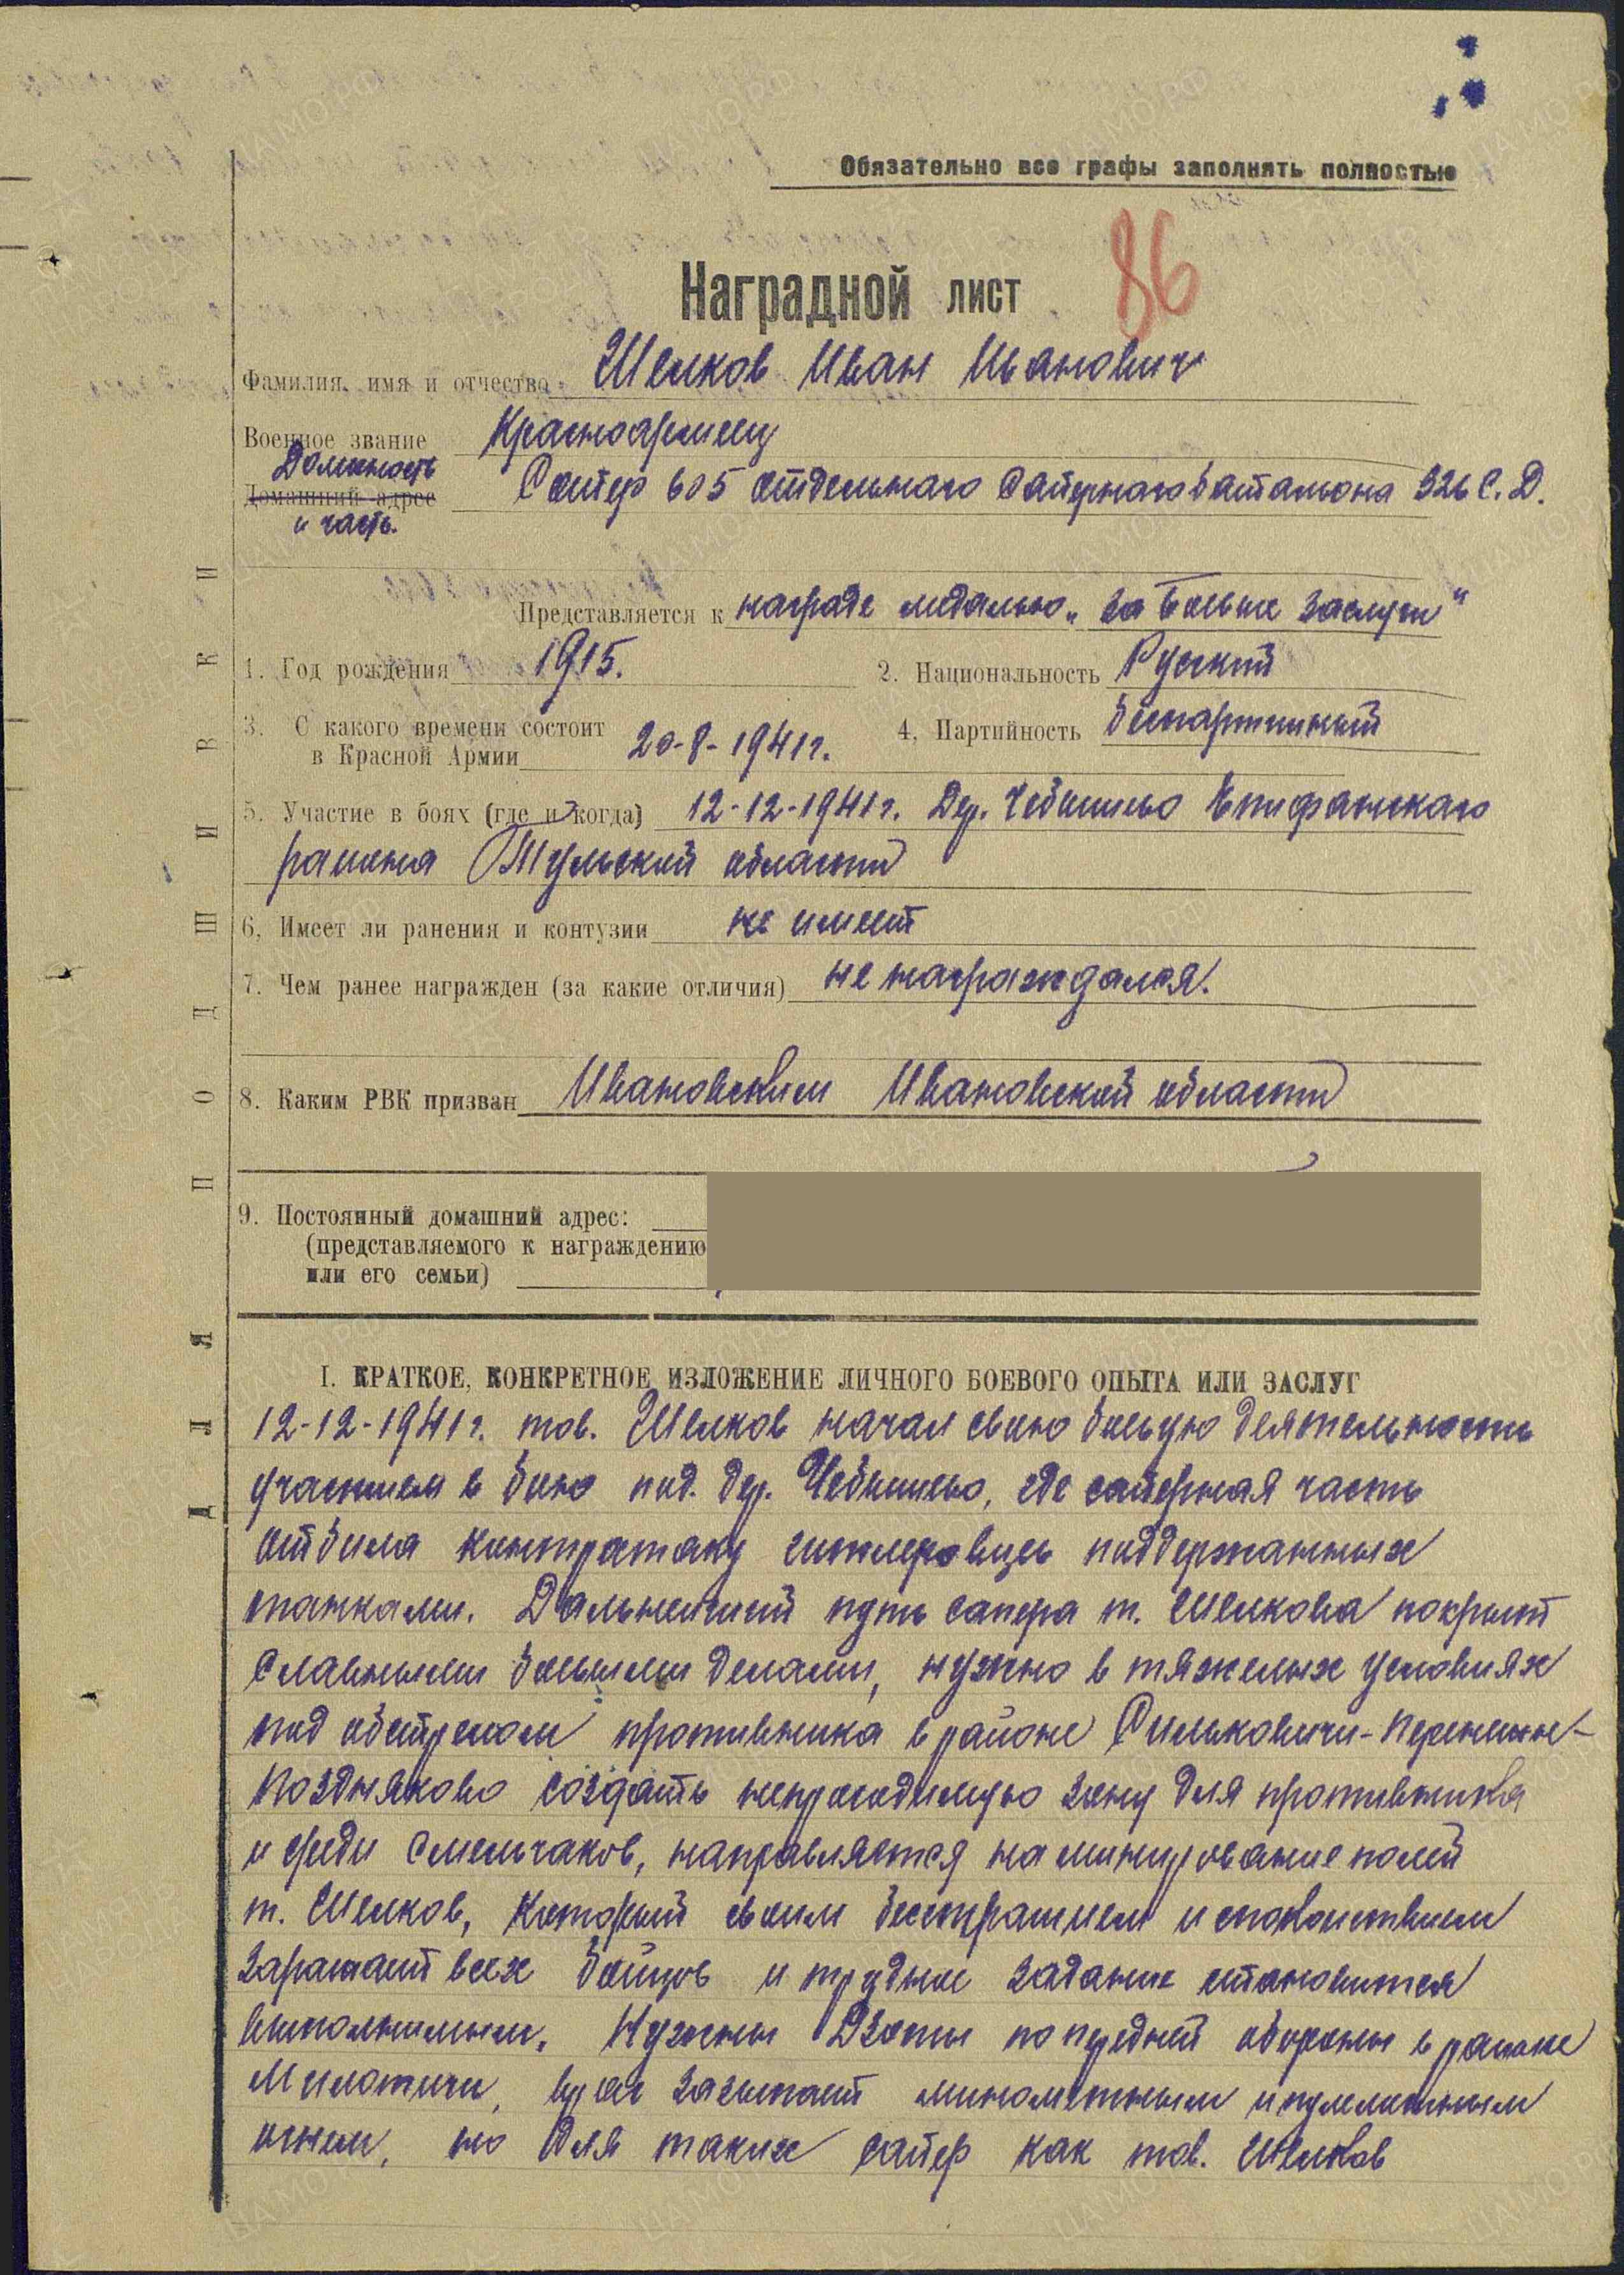 Обязательно все графы заполнять полностью
Наградной лист 86
Фамилия, имя и отчество Шелков Иван Иванович
Военное звание Красноармеец
Должность
Домашний адрес Сапер 605 отдельного Саперного батальона 326 С. Д.
и часть.
Представляется к награде медалью „За боевые заслуги"
1. Год рождения 1915. 2. Национальность Русский
3. С какого времени состоит 4. Партийность беспартийный
в Красной Армии 20-8-1941 г.
5. Участие в боях (где и когда) 12-12-1941 г. Дер. Чебышево Епифанского
района Тульской области
6. Имеет ли ранения и контузии не имеет
7. Чем ранее награжден (за какие отличия) не награждался.
8. Каким РВК призван Ивановским Ивановской области
9. Постоянный домашний адрес:
(представляемого к награждению
или его семьи)
I. КРАТКОЕ, КОНКРЕТНОЕ ИЗЛОЖЕНИЕ ЛИЧНОГО БОЕВОГО ОПЫТА ИЛИ ЗАСЛУГ
12-12-1941 г. тов. Шелков начал свою боевую деятельность
участием в бою под. дер. Чебышево, где саперная часть
отбила контратаку гитлеровцев поддержанных
танками. Дальнейший путь сапера т. Шелкова покрыт
славными боевыми делами, нужно в тяжелых условиях
под обстрелом противника в районе Сильковичи-
Поздняково создать непроходимую зону для противника
и среди смельчаков, направляется на минирование полей
т. Шелков, который своим бесстрашием и спокойствием
заражает всех бойцов и трудное задание становится
выполнимым. Нужны Дзоты по передней обороны в районе
Милотичи, враг засыпает минометным и пулеметным
огнем, но для таких сапер как тов. Шелков
ДЛЯ ПОДШИВКИ